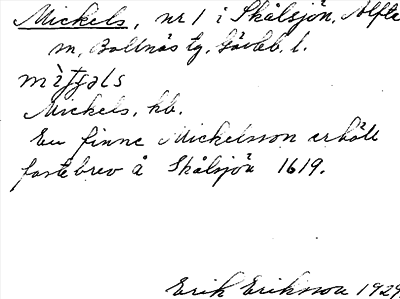 Mickels, nr 1 i Skålsjön, Alfta
sn, Bollnäs tg. Gävleb. l.
Mickels, kb.
En finne Mickelsson erhöll
fastebrev å Skålsjön 1619.
Erik Eriksson 1929